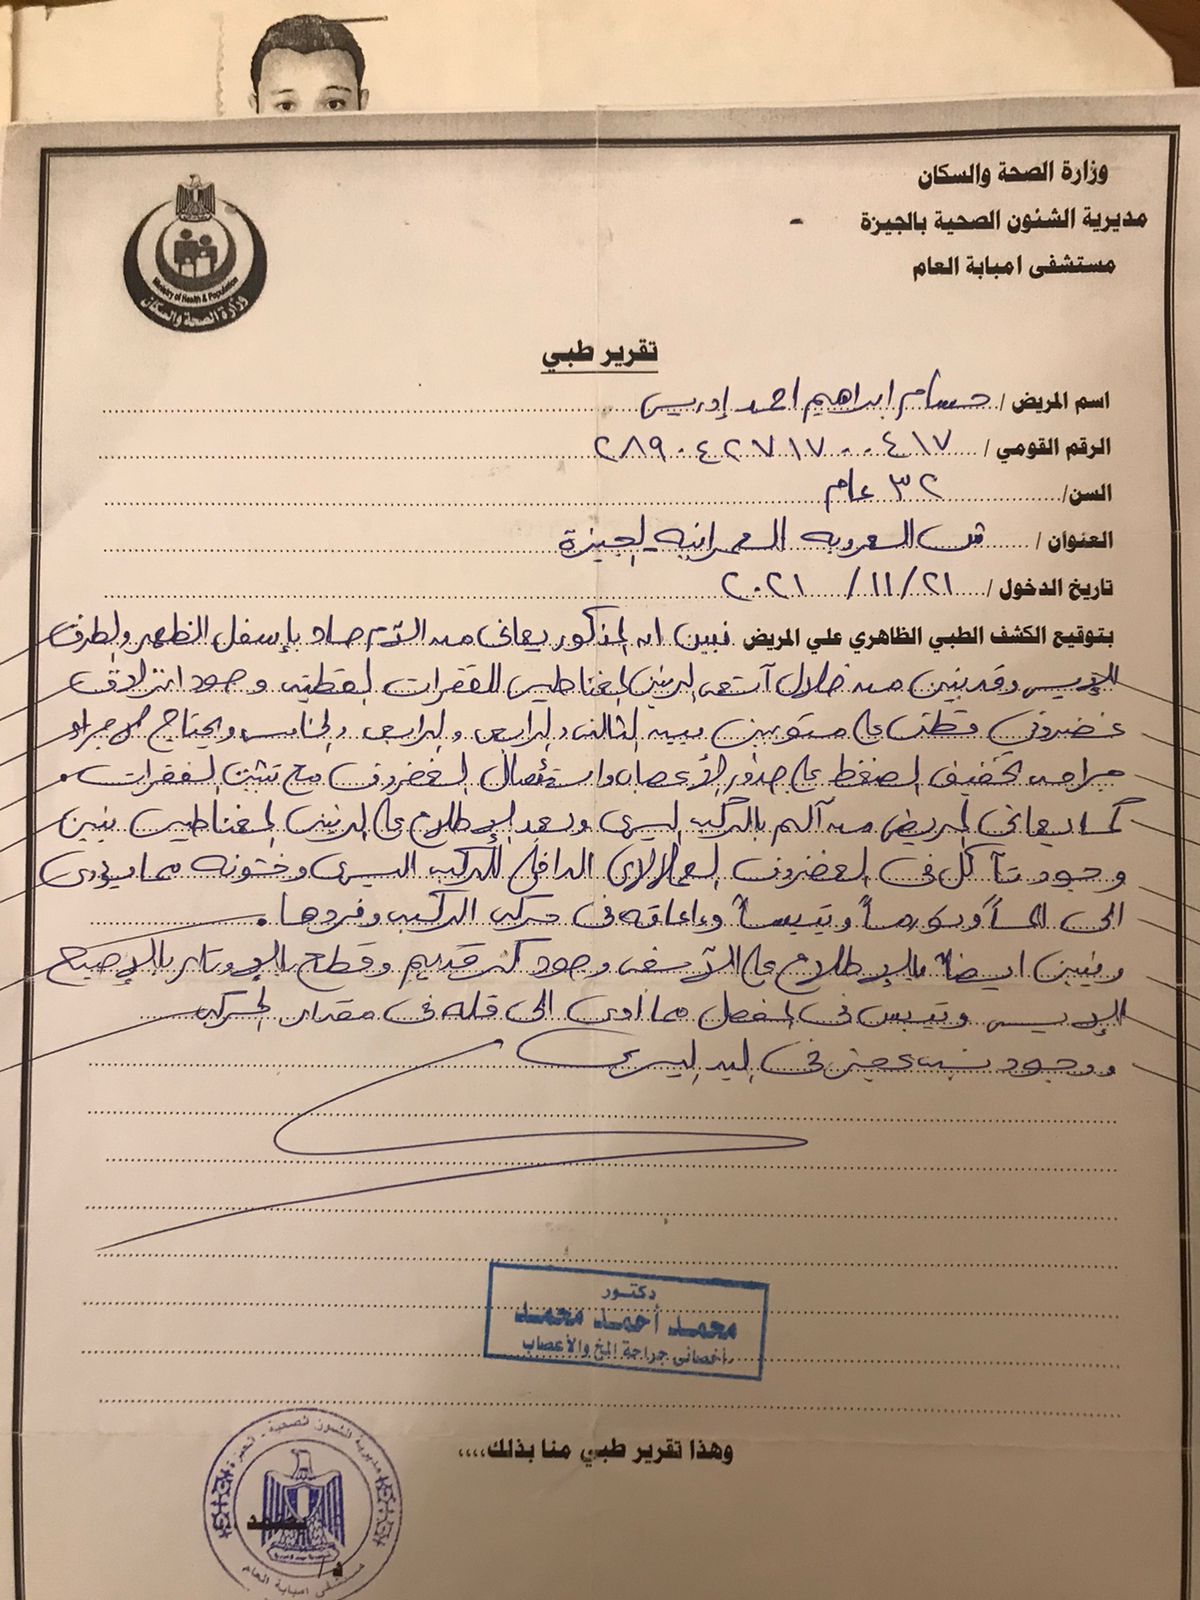 وزارة الصحة والسكان
مديرية الشئون الصحية بالجيزة
مستشفى امبابة العام
Ministry of Health & Population
وزارة الصحة والسكان
تقرير طبي
اسم المريض / حسام ابراهيم احمد إدريس
الرقم القومي / ٢٨٩٠٤٢٧١٧٠٠٤١٧
السن/ ٣٢ عام
العنوان / العروبه العمرانيه الجيزة
تاريخ الدخول / ٢١/ ١١/ ٢٠٢١
بتوقيع الكشف الطبي الظاهري علي المريض تبين ان المذكور يعانى من آلام حاد بإسفل الظهر والطرف
الايسر وقد تبين من خلال آشعه الرنين المغناطيسى للفقرات القطنيه وجود انزلاق
غضروفى قطنى على مستويين بين الثالث والرابع والرابع والخامس ويحتاج لإجراء
جراحه تخفيف الضغط على جذور الأعصاب واستئصال الغضروف مع تثبيت الفقرات
كما يعانى المريض من آلام بالركبه اليسرى وبعد الإطلاع على الرنين المغناطيسى تبين
وجود تآكل فى الغضروف الهلالى الداخلى للركبه اليسرى وخشونه مما يؤدى
الى الماً وتورماً وتيبساً وإعاقه فى حركه الركبه وفردها.
وتبين ايضاً بالإطلاع على الآشعه وجود كسر قديم وقطع بالاوتار بالإصبع
الايسر وتيبس فى المفصل مما أدى الى قله فى مقدار الحركه
ووجود نسبه عجز فى اليد اليسرى
دكتور
محمد أحمد محمد
أخصائى جراحة المخ والأعصاب
وهذا تقرير طبي منا بذلك،،،،
مديرية الشئون الصحية - الجيزة
مستشفى امبابة العام